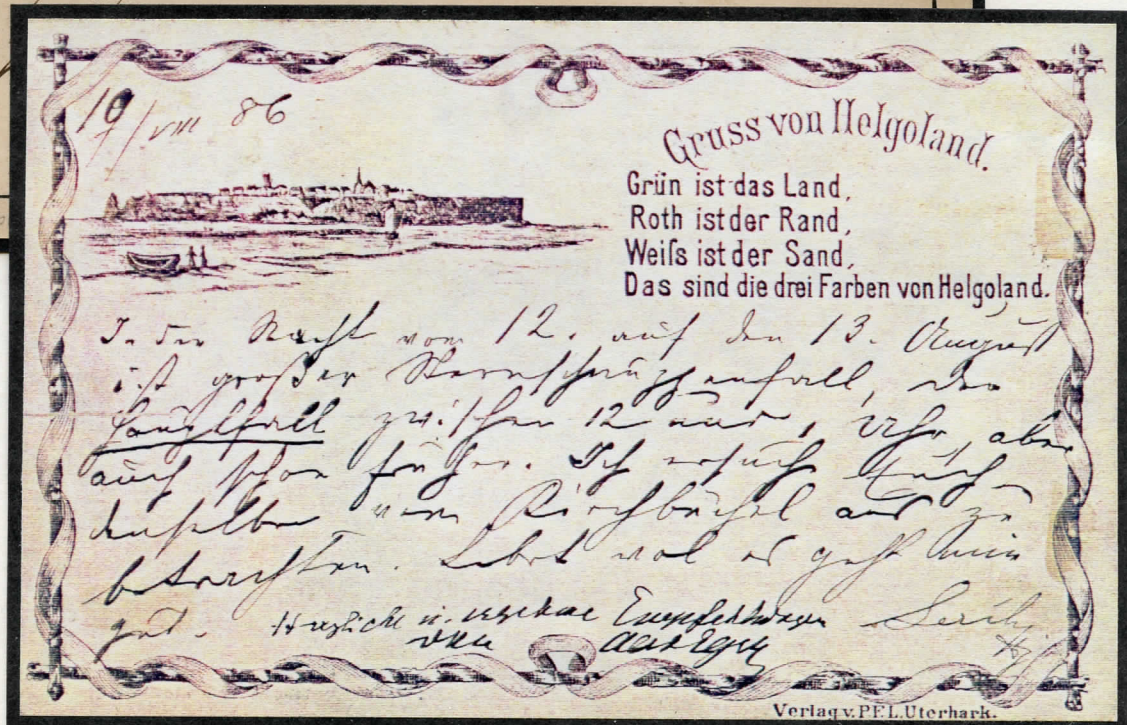 19/VIII 86
Gruss von Helgoland.
Grün ist das Land,
Roth ist der Rand,
Weiſs ist der Sand,
Das sind die drei Farben von Helgoland.
In der Nacht vom 12. auf den 13. August
ist großer Sternschnuppenfall, der
zwischen 12 und 1 Uhr, aber
auch schon früher. Ich ersuche Euch
denselben vom Kirchbüchel aus zu
betrachten. Lebet wol es geht mir
gut. Herzliche u. ergebene Empfehlungen
von
Verlag v. P.F.L. Uterhark.